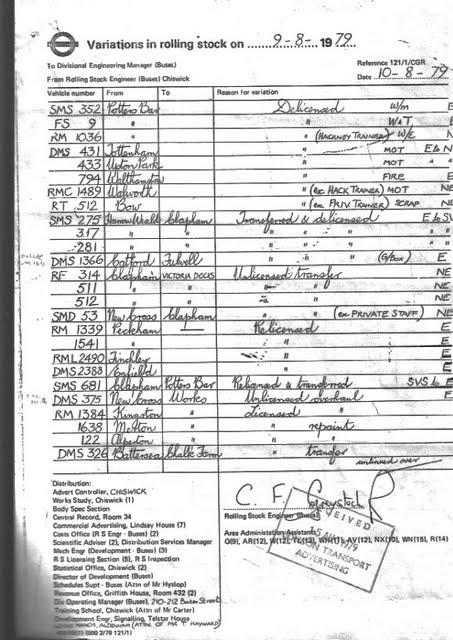 Variations in rolling stock on 9-8-1979
To Divisional Engineering Manager (Buses)
Reference 121/1/CGR
From Rolling Stock Engineer (Buses) Chiswick
Date 10-8-79
Vehicle number From To Reason for variation
SMS 352 Potters Bar Delicensed W/m E
FS 9 " " W&T E
RM 1036 " " (HACKNEY TRAINER) W/E E
DMS 431 Tottenham " MOT E
433 Upton Park " MOT " "
794 Walthamstow " FIRE E
RMC 1489 Walworth " (ex HACK TRAINER) MOT NE
RT 512 Bow " (ex PRIV. TRAINER) SCRAP NE
SMS 275 Harrow Weald Clapham Transferred & delicensed E
317 " " " " "
281 " " " " "
DMS 1366 Catford Fulwell " " (G/box) E
RF 314 Clapham VICTORIA DOCKS Unlicensed transfer NE
511 " " " " NE
512 " " " " NE
SMD 53 New Cross Clapham " " (ex PRIVATE STAFF) NE
RM 1339 Peckham — Relicensed E
1541 " " E
RML 2490 Finchley " E
DMS 2388 Enfield " E
SMS 681 Clapham Potters Bar Relicensed & transferred SVS to E
DMS 375 New Cross Works Unlicensed overhaul E
RM 1384 Kingston " Licensed "
1638 Merton " " repaint
122 Alperton " " "
DMS 326 Battersea Chalk Farm " transfer
continued over
Distribution:
Advert Controller, CHISWICK
Works Study, Chiswick (1)
Body Spec Section
Central Record, Room 34
Commercial Advertising, Lindsay House (7)
Costs Office (R S Engr - Buses) (2)
Scientific Adviser (2), Distribution Services Manager
Mech Engr (Development - Buses) (3)
R S Licensing Section (5), R S Inspection
Statistical Office, Chiswick (2)
Director of Development (Buses)
Schedules Supt - Buses (Attn of Mr Hyslop)
Revenue Office, Griffith House, Room 432 (2)
Operating Manager (Buses), 210-212 Baker Street
Training School, Chiswick (Attn of Mr Carter)
Development Engr, Signalling, Telstar House
ALDENHAM (ATTN. OF MR T HAYWARD)
121/1)
C. F.
Rolling Stock Engineer (Buses)
Area Administration Assistants
RECEIVED
1979
LONDON TRANSPORT
ADVERTISING